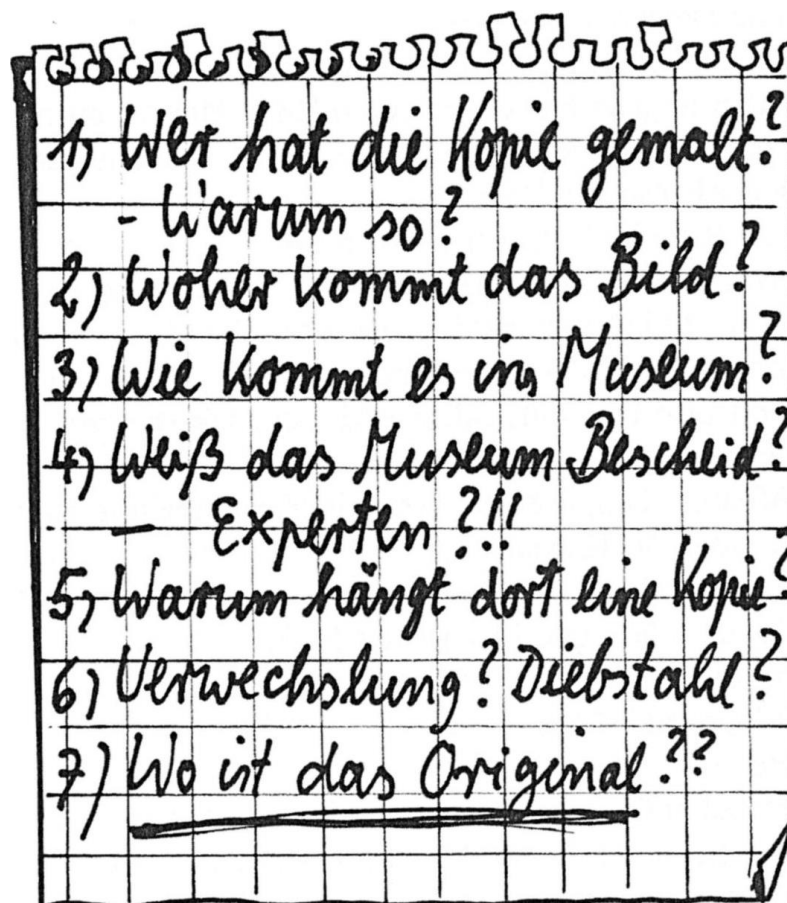 1) Wer hat die Kopie gemalt?
- Warum so?
2) Woher kommt das Bild?
3) Wie kommt es ins Museum?
4) Weiß das Museum Bescheid?
- Experten?!!
5) Warum hängt dort eine Kopie?
6) Verwechslung? Diebstahl?
7) Wo ist das Original??